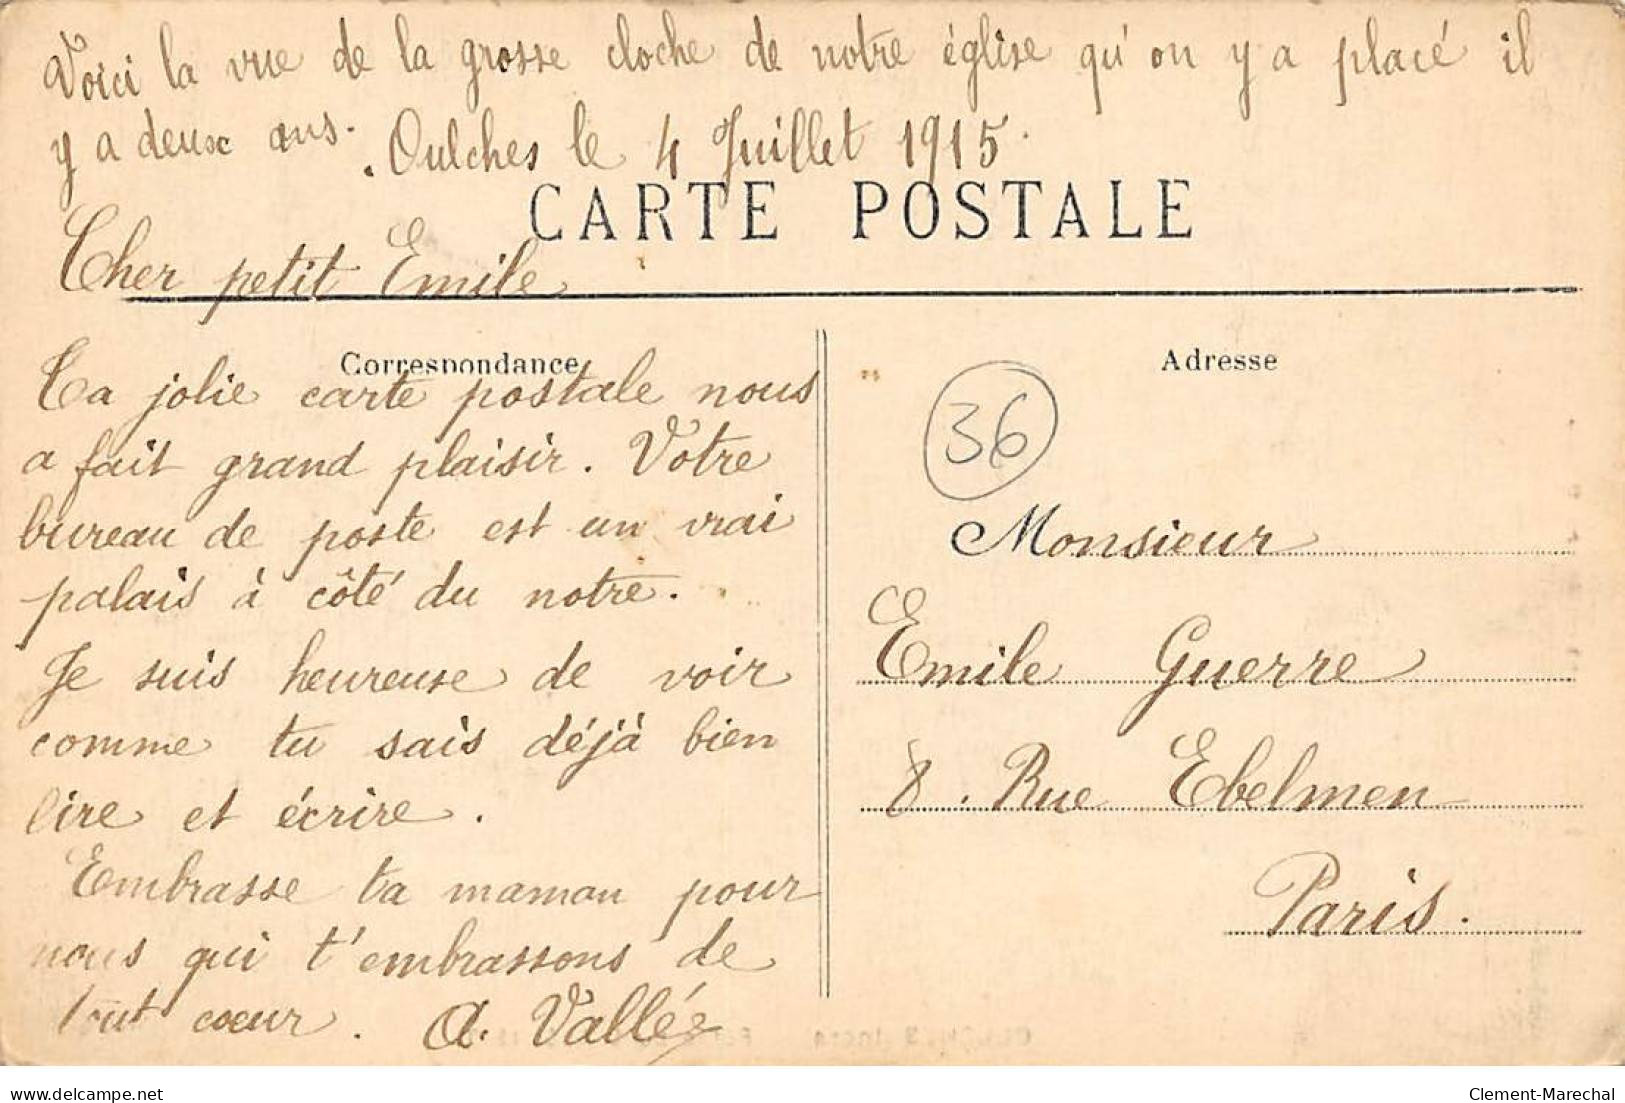 Voici la vue de la grosse cloche de notre église qu'on y a placé il
y a deux ans. Oulches le 4 Juillet 1915.
CARTE POSTALE
Cher petit Emile
Correspondance
Ta jolie carte postale nous
a fait grand plaisir. Votre
bureau de poste est un vrai
palais à côté du notre.
Je suis heureuse de voir
comme tu sais déjà bien
lire et écrire.
Embrasse ta maman pour
nous qui t'embrassons de
tout coeur. A. Vallée
Adresse
36
Monsieur
Emile Guerre
8. Rue Ebelmen
Paris.
www.delcampe.net
Clement-Marechal